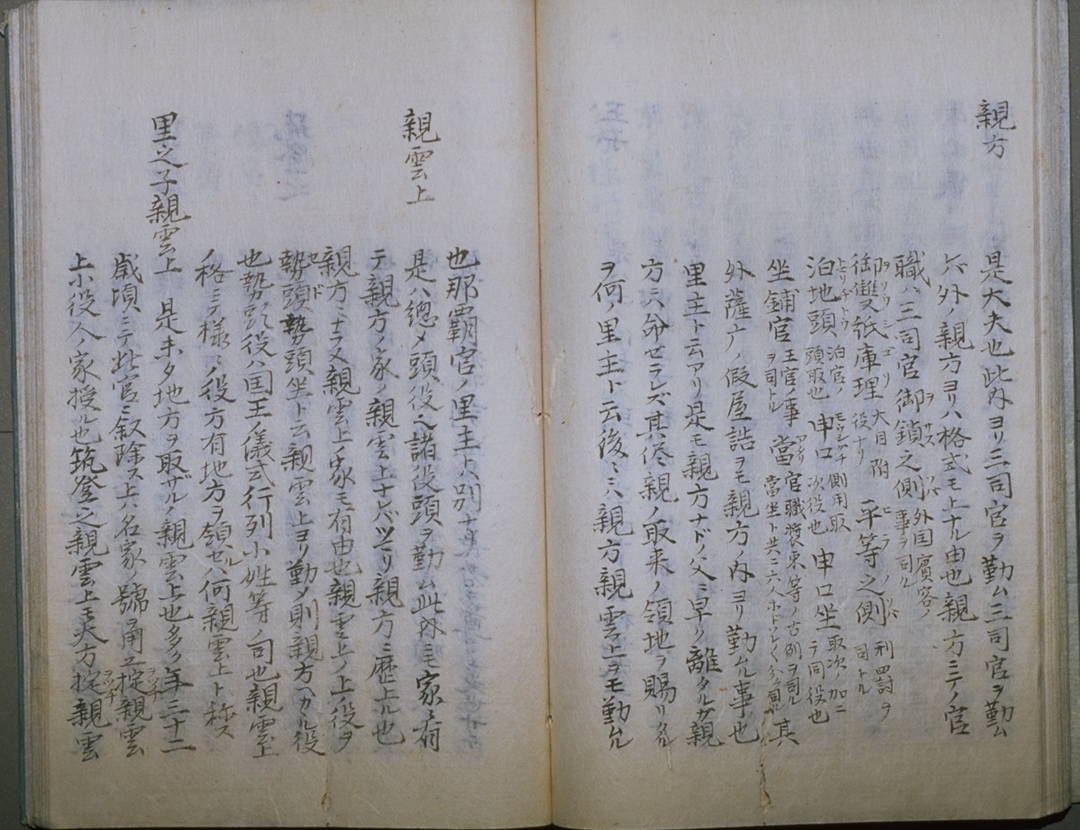 親方
是大夫也此外ヨリ三司官ヲ勤ム三司官ヲ勤ム
六外ノ親方ヨリハ格式モ上ナル由也親方ニテノ官
職ハ三司官御鎖之側 外国賓客ノ事ヲ司ル
御双紙庫理 大目附役ナリ 平等之側 刑罰ヲ司トル
泊地頭 泊官ノ頭取也 申口 側用取次役也 申口坐 取次ノ加ニテ同役也
坐鋪官 王宮ノ事ヲ司トル 當官 職 装束等ノ古例ヲ司ル 當坐ト共ニ六人 其
外薩广ノ假屋詰ヲモ親方ノ内ヨリ勤ムル事也
里主ト云アリ是モ親方ナドノ父ニ早ク離タルサ親
方ニハ命セラレズ其侭親ノ取来ノ領地ヲ賜リタル
ヲ何ノ里主ト云後ニハ親方親雲上ヲモ勤ムル
也那覇官ノ里主トハ別ナ
親雲上
是ハ總メ頭役ヘ諸役頭ヲ勤ム此外王家ニ有
テ親方ノ家ノ親雲上ナレバツニリ親方ニ歴上ル也
親方ニナラヌ親雲上ノ家モ有由也親雲上ノ上役ヲ
勢頭勢頭坐ト云親雲上ヨリ勤メ則親方ヘカル役
也勢頭役ハ国王ノ儀式行列小姓等ノ司也親雲上
格ニテ様々ノ役方有地方ヲ領セルヲ何親雲上ト称ス
里之子親雲上
是未タ地方ヲ取ザルノ親雲上也多ク年三十二
歳頃ニテ此官ニ叙除ス上ハ名家ノ號ノ掟親雲
上小役人ノ家授ル也筑登之親雲上モ大方掟親雲